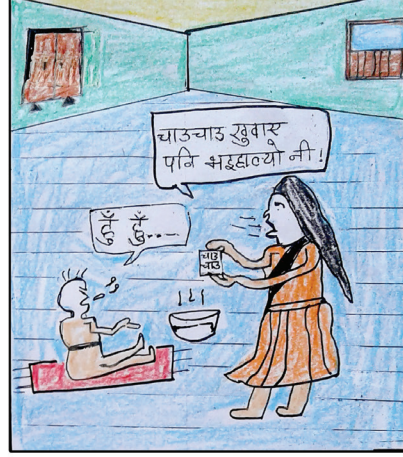 चाउचाउ खुवाए
पनि भइहाल्यो नी !
हुँ हुँ....
चाउ
चाउ